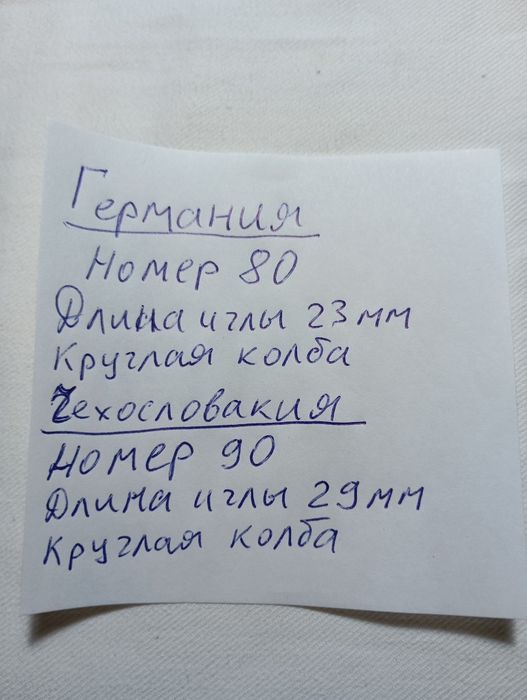 Германия
Номер 80
Длина иглы 23мм
Круглая колба
Чехословакия
Номер 90
Длина иглы 29мм
Круглая колба